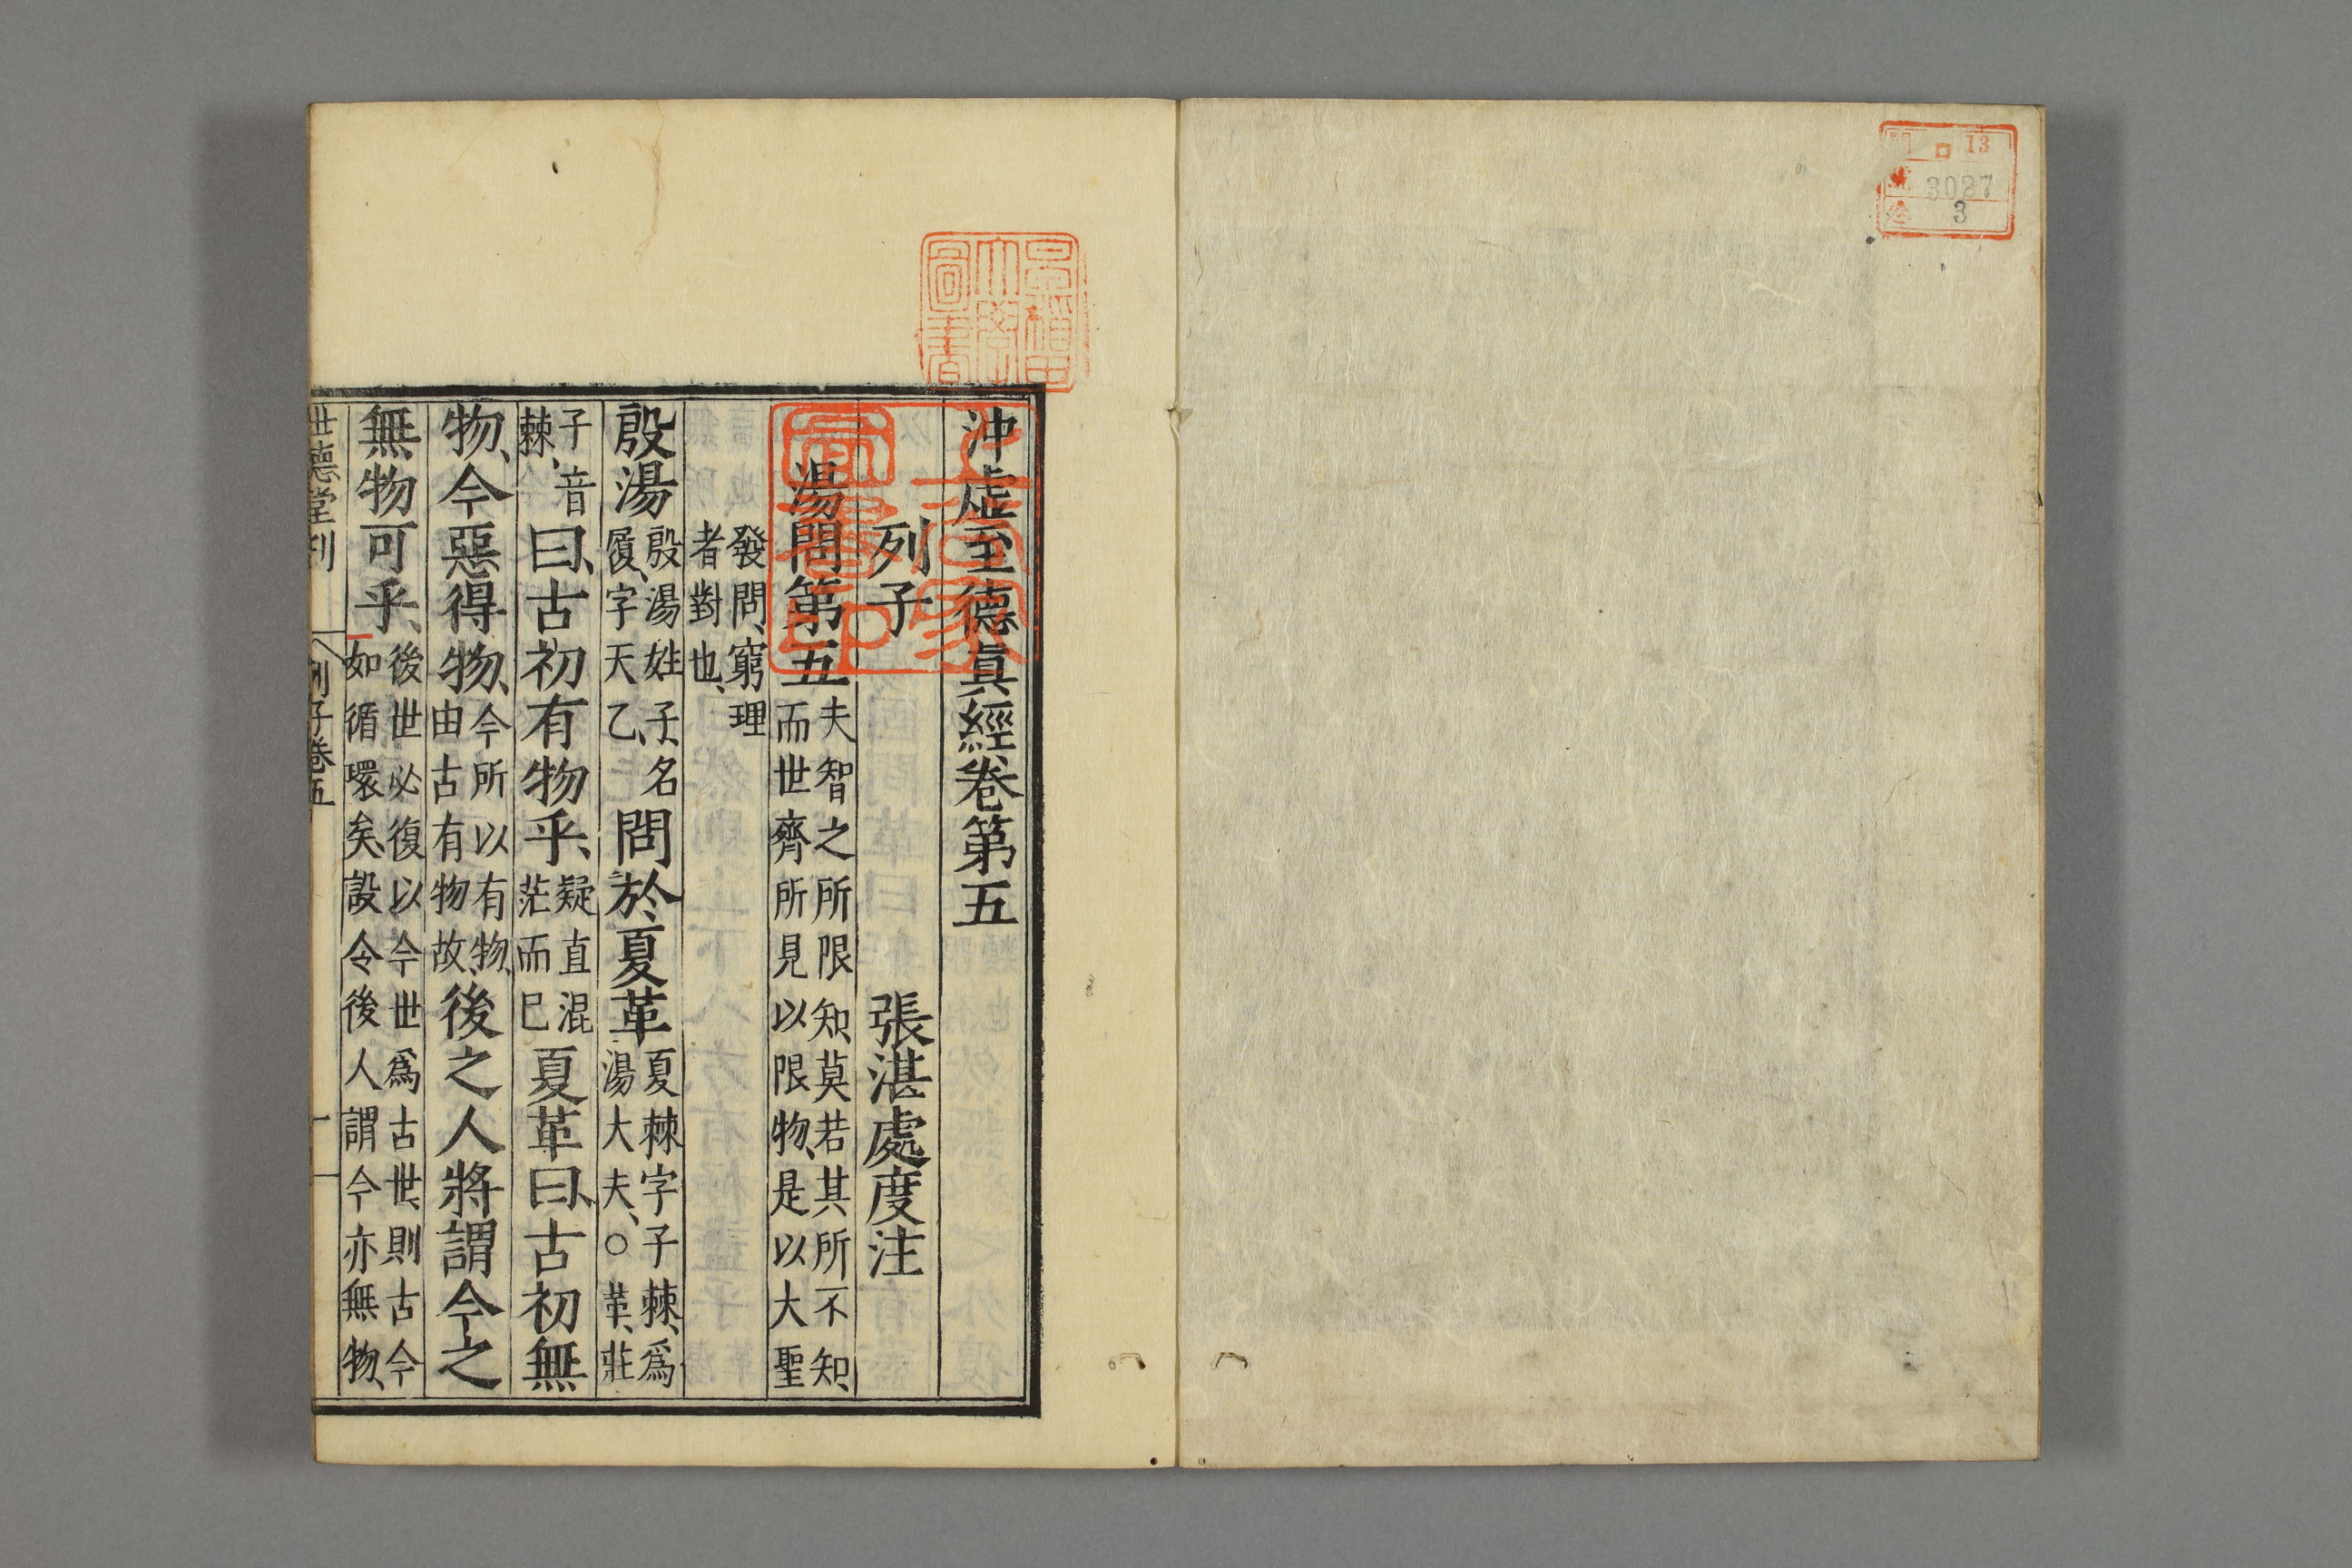 沖虛至德眞經卷第五
列子 張湛處度注
湯問第五 夫智之所限知莫若其所不知、
而世齊所見以限物、是以大聖
發問、窮理
者對也、
殷湯 殷湯姓子、名
履、字天乙、 問於夏革 夏棘字子棘、爲
湯大夫、○革、莊
子音
棘、 曰、古初有物乎、 疑直混
茫而已 夏革曰、古初無
物、今惡得物、 今所以有物、
由古有物故、 後之人將謂今之
無物可乎、 後世必復以今世爲古世、則古今
如循環矣、設令後人謂今亦無物、
世德堂刊 列子卷五 一
早稲田
大學
圖書
門 口 13
號 3027
卷 3